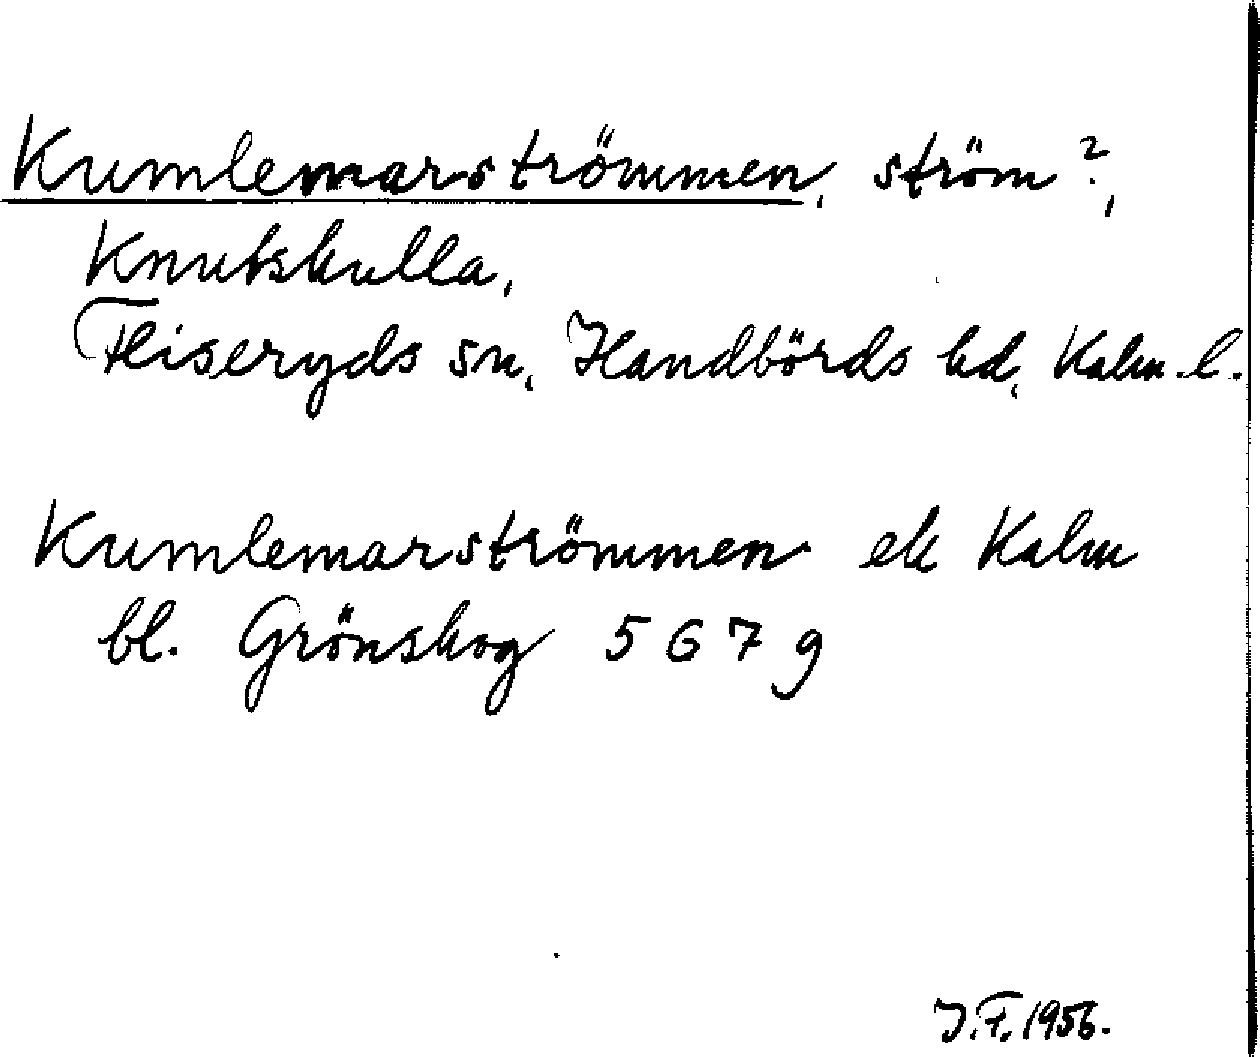 Kumlemarströmmen, ström?,
Knutskulla,
Fliseryds sn, Handbörds hd, Kalm. l.
Kumlemarströmmen ek Kalm
bl. Grönskog 5 6 7 9
J.F. 1956.